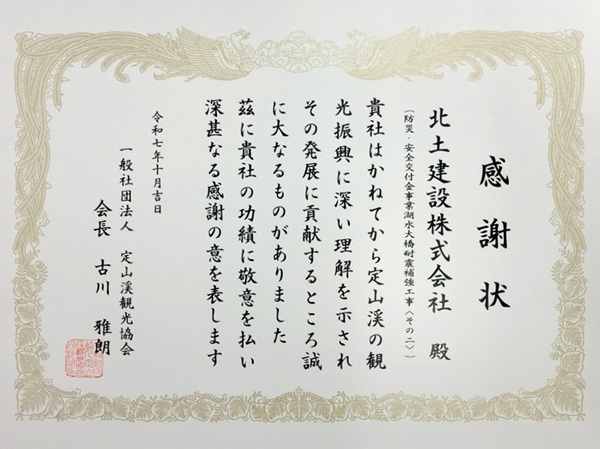 感謝状
北土建設株式会社 殿
(防災・安全交付金事業湖水大橋耐震補強工事〈その二〉)
貴社はかねてから定山渓の観
光振興に深い理解を示され
その発展に貢献するところ誠
に大なるものがありました
茲に貴社の功績に敬意を払い
深甚なる感謝の意を表します
令和七年十月吉日
一般社団法人 定山渓観光協会
会長 古川 雅朗